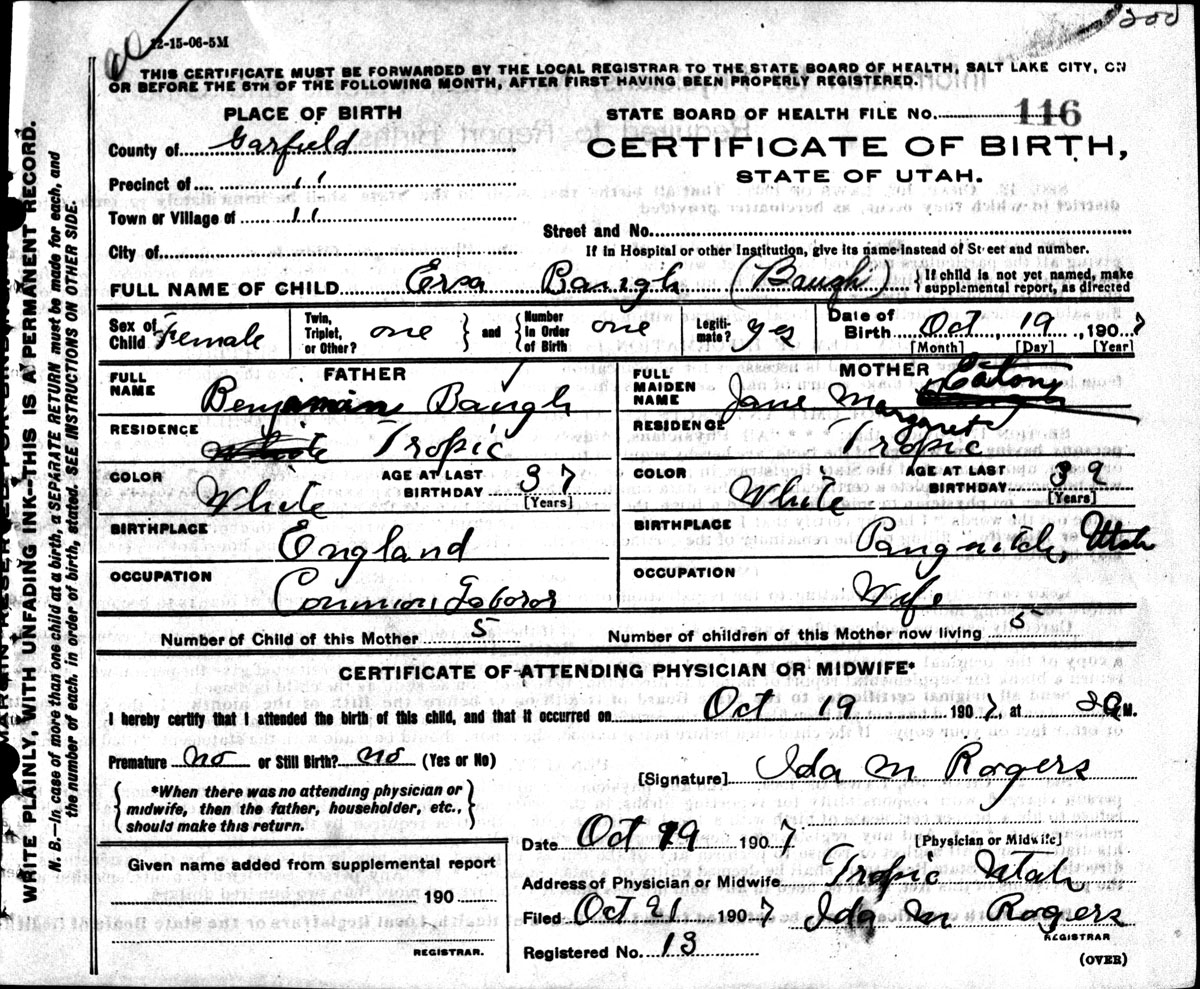 200
12-15-06-5M
THIS CERTIFICATE MUST BE FORWARDED BY THE LOCAL REGISTRAR TO THE STATE BOARD OF HEALTH, SALT LAKE CITY, ON
OR BEFORE THE 5TH OF THE FOLLOWING MONTH, AFTER FIRST HAVING BEEN PROPERLY REGISTERED.
PLACE OF BIRTH
STATE BOARD OF HEALTH FILE NO. 116
County of Garfield
CERTIFICATE OF BIRTH,
STATE OF UTAH.
Precinct of " 
Town or Village of "
Street and No.
City of
If in Hospital or other Institution, give its name instead of Street and number.
FULL NAME OF CHILD Erva Baugh (Baugh) { If child is not yet named, make
supplemental report, as directed
Sex of Child Female
Twin, Triplet, or Other? one } and { Number in Order of Birth one
Legiti-mate? yes
Date of Birth Oct 19, 1907
[Month] [Day] [Year]
FATHER
FULL NAME Benjamin Baugh
RESIDENCE Tropic
COLOR White
AGE AT LAST BIRTHDAY 37
[Years]
BIRTHPLACE England
OCCUPATION Common Laborer
MOTHER
FULL MAIDEN NAME Jane Margaret Eaton
RESIDENCE Tropic
COLOR White
AGE AT LAST BIRTHDAY 39
[Years]
BIRTHPLACE Panguitch, Utah
OCCUPATION Wife
Number of Child of this Mother 5 Number of children of this Mother now living 5
CERTIFICATE OF ATTENDING PHYSICIAN OR MIDWIFE*
I hereby certify that I attended the birth of this child, and that it occurred on Oct 19 1907, at M.
Premature no or Still Birth? no (Yes or No)
{ *When there was no attending physician or
midwife, then the father, householder, etc.,
should make this return. }
[Signature] Ida M Rogers
[Physician or Midwife]
Date Oct 19 1907
Address of Physician or Midwife Tropic Utah
Filed Oct 21 1907 Ida M Rogers
REGISTRAR
Registered No. 13
(OVER)
Given name added from supplemental report
190
REGISTRAR.
WRITE PLAINLY, WITH UNFADING INK--THIS IS A PERMANENT RECORD.
N. B.--In case of more than one child at a birth, a SEPARATE RETURN must be made for each, and
the number of each, in order of birth, stated. SEE INSTRUCTIONS ON OTHER SIDE.